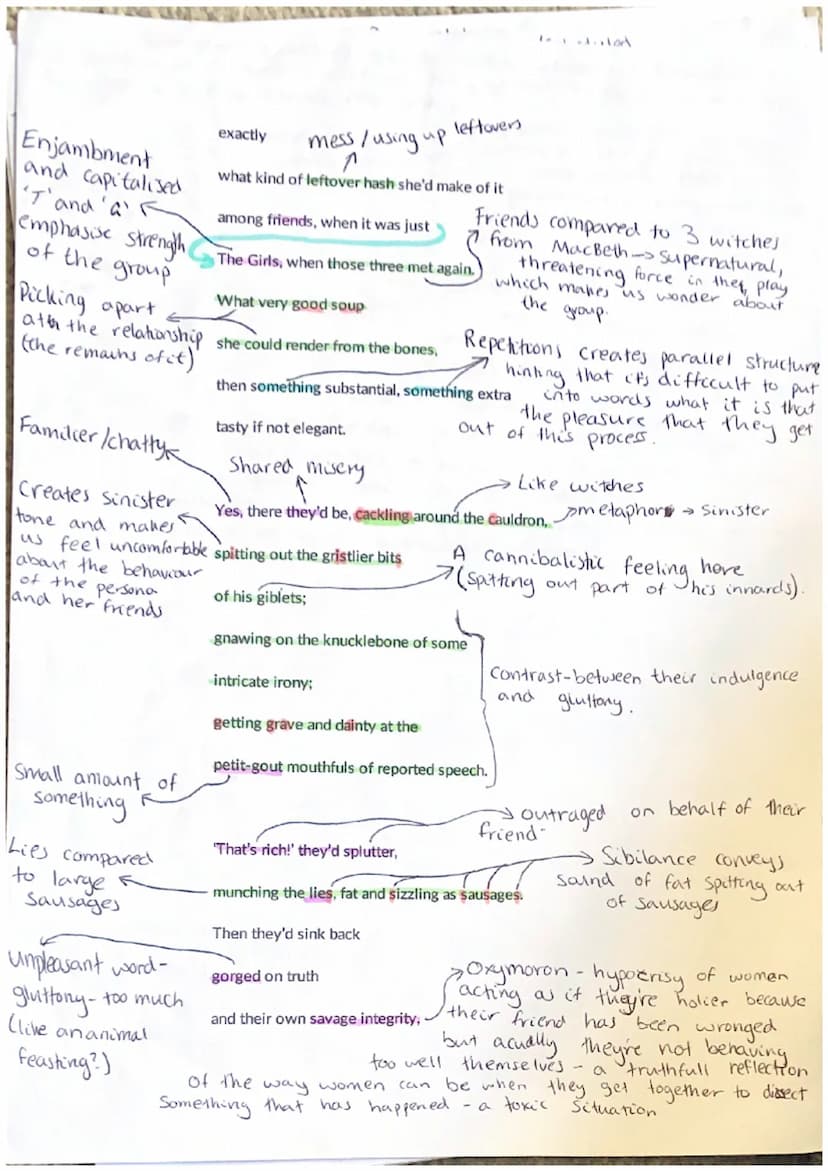 exactly
mess / using up leftovers
what kind of leftover hash she'd make of it
among friends, when it was just
The Girls, when those three met again.
What very good soup
she could render from the bones,
then something substantial, something extra
tasty if not elegant.
Shared misery
Yes, there they'd be, cackling around the cauldron,
spitting out the gristlier bits
of his giblets;
gnawing on the knucklebone of some
intricate irony;
getting grave and dainty at the
petit-gout mouthfuls of reported speech.
'That's rich!' they'd splutter,
munching the lies, fat and sizzling as sausages.
Then they'd sink back
gorged on truth
and their own savage integrity,
Enjambment
and capitalised
'T' and 'G'
emphasise strength
of the group
Picking apart
the relationship
(the remains of it)
Familier/chatty
Creates sinister
tone and makes
us feel uncomfortable
about the behaviour
of the persona
and her friends
Small amount of
something
Lies compared
to large
sausages
Unpleasant word-
gluttony- too much
(like an animal
feasting?)
Friends compared to 3 witches
from MacBeth → Supernatural,
threatening force in the play
which makes us wonder about
the group.
Repetitions creates parallel structure
hinting that it's difficult to put
into words what it is that
the pleasure that they get
out of this process.
Like witches
metaphor → sinister
A cannibalistic feeling here
(spitting out part of his innards).
Contrast-between their indulgence
and gluttony.
outraged on behalf of their
friend-
Sibilance conveys
sound of fat spitting out
of sausages
Oxymoron - hypocrisy of women
acting as if they're holier because
their friend has been wronged
but acually they're not behaving
too well themselves - a truthfull reflection
of the way women can be when they get together to dissect
something that has happened - a toxic situation